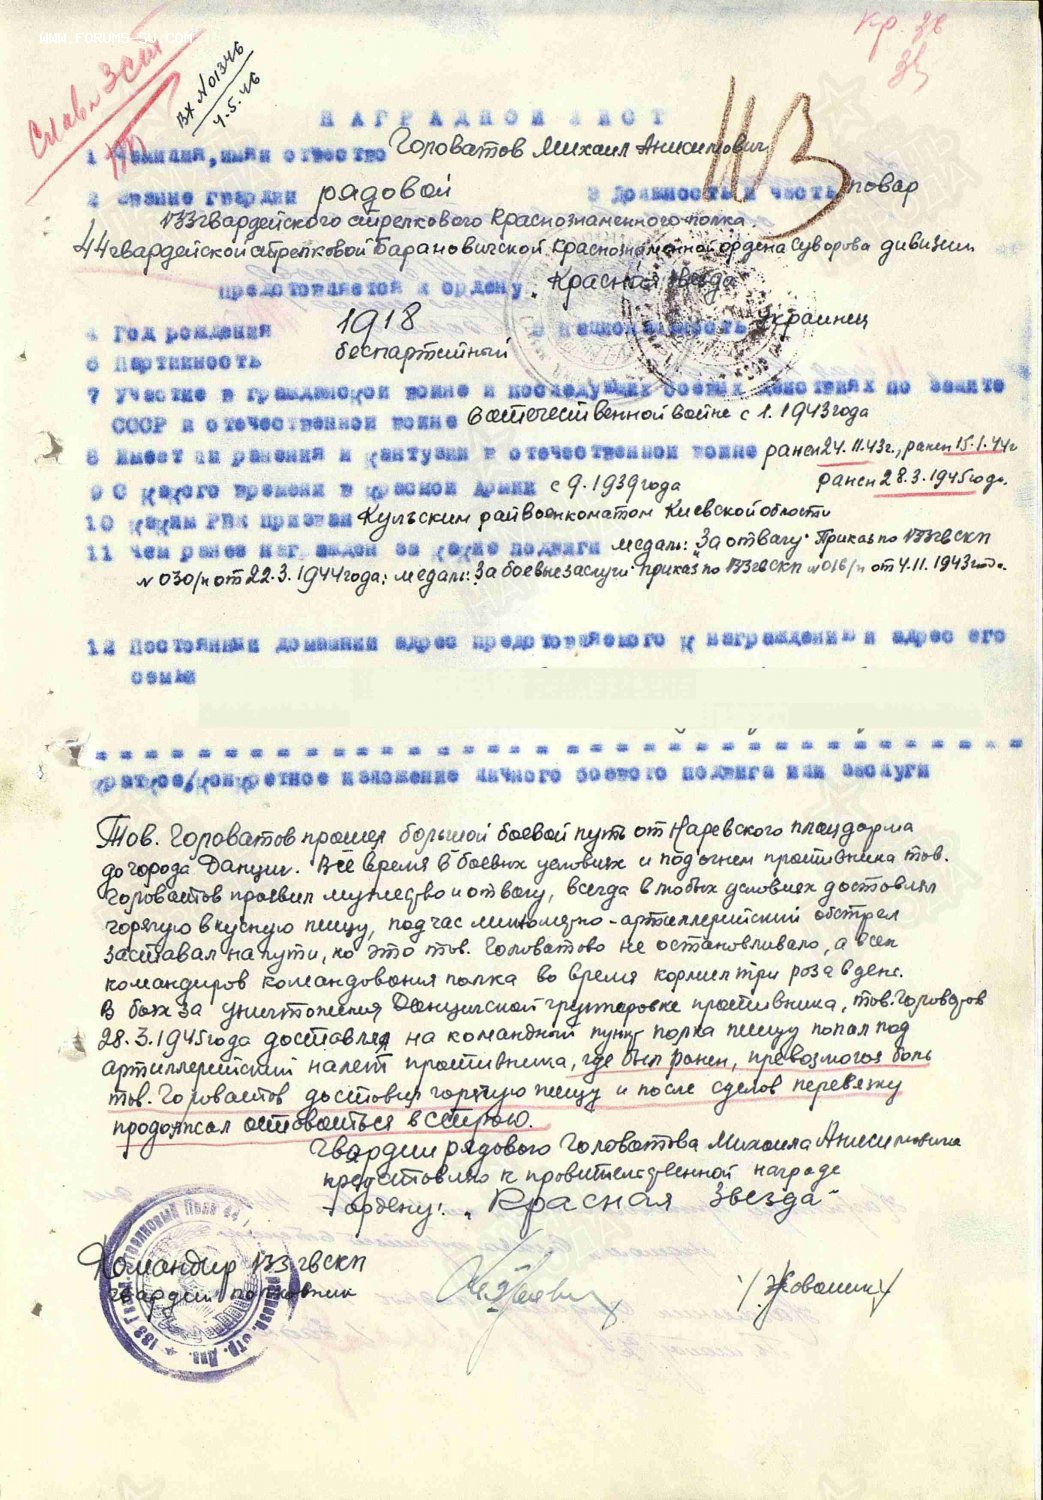 WWW.FORUMS-SU.COM
Кр. Зв
Зв
Слав. 3 ст
Вх №01346
4.5.46
НАГРАДНОЙ ЛИСТ
1 Фамилия, имя и отчество Головатов Михаил Анисимович
2 Звание гвардии рядовой 3 Должность и часть повар
133 гвардейского стрелкового Краснознаменного полка
44 гвардейской стрелковой Барановичской Краснознаменной ордена Суворова дивизии.
Представляется к ордену „Красная Звезда"
4 Год рождения 1918 5 Национальность Украинец
6 Партийность беспартийный
7 Участие в гражданской войне и последующих боевых действиях по защите
СССР и отечественной войне в отечественной войне с 1.1943 года
8 Имеет ли ранения и контузии в отечественной войне ранен 24.11.43г., ранен 15.1.44г
ранен 28.3.1945 года.
9 С какого времени в Красной Армии с 9.1939 года
10 Каким РВК призван Кульским райвоенкоматом Киевской области
11 Чем ранее награжден за какие подвиги медаль: „За отвагу" Приказ по 133 гвскп
№030/н от 22.3.1944 года; медаль: „За боевые заслуги" приказ по 133 гвскп №016/н от 4.11.1943 года.
12 Постоянный домашний адрес представляемого к награждению и адрес его
семьи
Краткое, конкретное изложение личного боевого подвига или заслуги
Тов. Головатов прошел большой боевой путь от Наревского плацдарма
до города Данциг. Всё время в боевых условиях и под огнем противника тов.
Головатов проявил мужество и отвагу, всегда в любых условиях доставлял
горячую вкусную пищу, подчас минометно-артиллерийский обстрел
заставал на пути, но это тов. Головатово не остановливало, а всех
командиров командования полка во время кормил три раза в день.
В боях за уничтожения Данцигской группировке противника, тов. Головатов
28.3.1945 года доставляя на командный пункт полка пищу попал под
артиллерийский налет противника, где был ранен, превозмогая боль
тов. Головатов доставил горячую пищу и после сделов перевязку
продолжал оставаться в строю.
Гвардии рядового Головатова Михаила Анисимовича
представляю к правительственной награде
ордену: „Красная Звезда"
Командир 133 гвскп
гвардии полковник /Жованик/